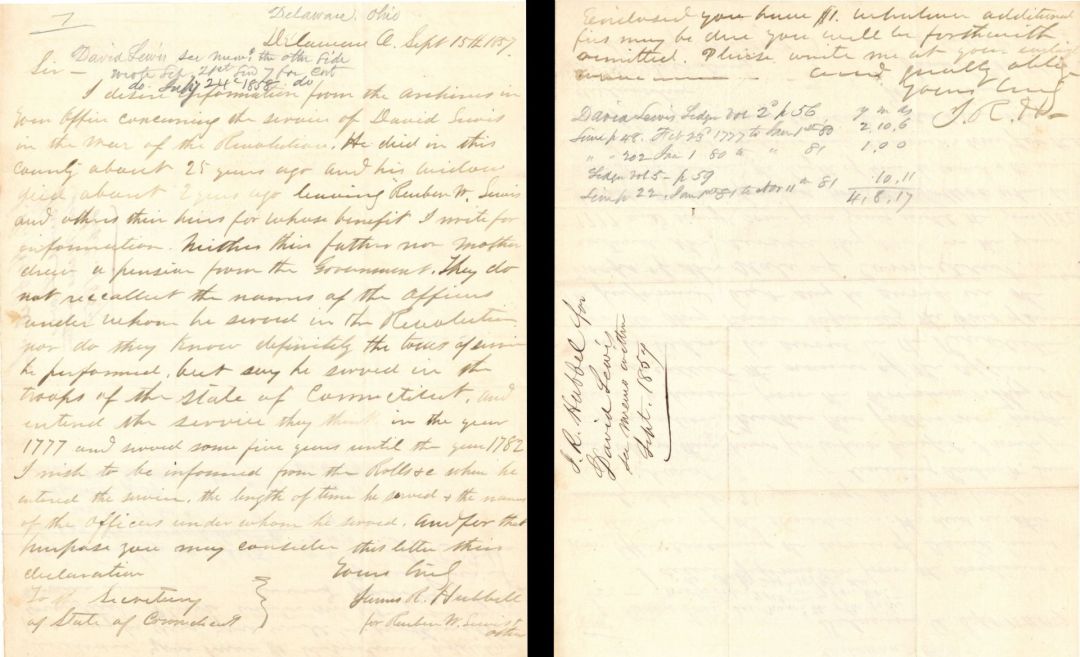 7
Delaware, Ohio
Delaware O. Sept 15th 1857
David Lewis see mem. the other side
Sir –
wrote Sep. 21st 7 for cert
do July 24 1858 do
I desire information from the archives in
your office concerning the services of David Lewis
in the war of the Revolution. He died in this
County about 25 years ago and his widow
died about 2 years ago leaving Reuben W. Lewis
and others their heirs for whose benefit I write for
information. Neither their father nor mother
drew a pension from the Government. They do
not reccollect the names of the officers
under whom he served in the Revolution
nor do they know definitely the tours of service
he performed, but say he served in the
troops of the State of Connecticut, and
entered the service they think in the year
1777 and served some five years until the year 1782
I wish to be informed from the Rolls &c when he
entered the service, the length of time he served & the names
of the officers under whom he served. And for that
purpose you may consider this letter their
declaration
Yours truly
To the Secretary
of State of Connecticut
James R. Hubbell
for Reuben W. Lewis &
others
Enclosed you have $1. whatever additional
fees may be due you will be forthwith
remitted. Please write me at your earliest
and greatly oblige
Yours truly
J. R. H
David Lewis Ledger vol 2d p 56 y m ds
Same p 48. Feb 25th 1777 to Jan 1st 80 2,10,6
" " 202 Jan 1 80 to " 81 1,0 0
Ledger vol 5 - p 59
Same p 22, Jan 1st 81 to Nov 11th 81 10,11
4,8,17
J. R. Hubbel for
David Lewis
see memo within
Sept. 1857